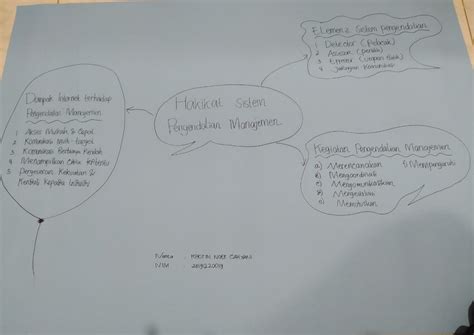 Hakikat Sistem
Pengendalian Manajemen
Elemen2 Sistem pengendalian
1 Detector (Pelacak)
2 Assesor (penilai)
3 Efektor (umpan Balik)
4 Jaringan Komunikasi
Dampak Internet terhadap
Pengendalian Manajemen
1 Akses Mudah & Cepat
2 Komunikasi multi-target
3 Komunikasi Berbiaya Rendah
4 Menampilkan Citra
5 Pergeseran Kekuatan &
Kendali Kepada Individu
Kegiatan Pengendalian Manajemen
a) Merencanakan
b) Mengoordinasi
c) Mengomunikasikan
d) Mengevaluasi
e) Memutuskan
f) Mempengaruhi
Nama :
NIM :